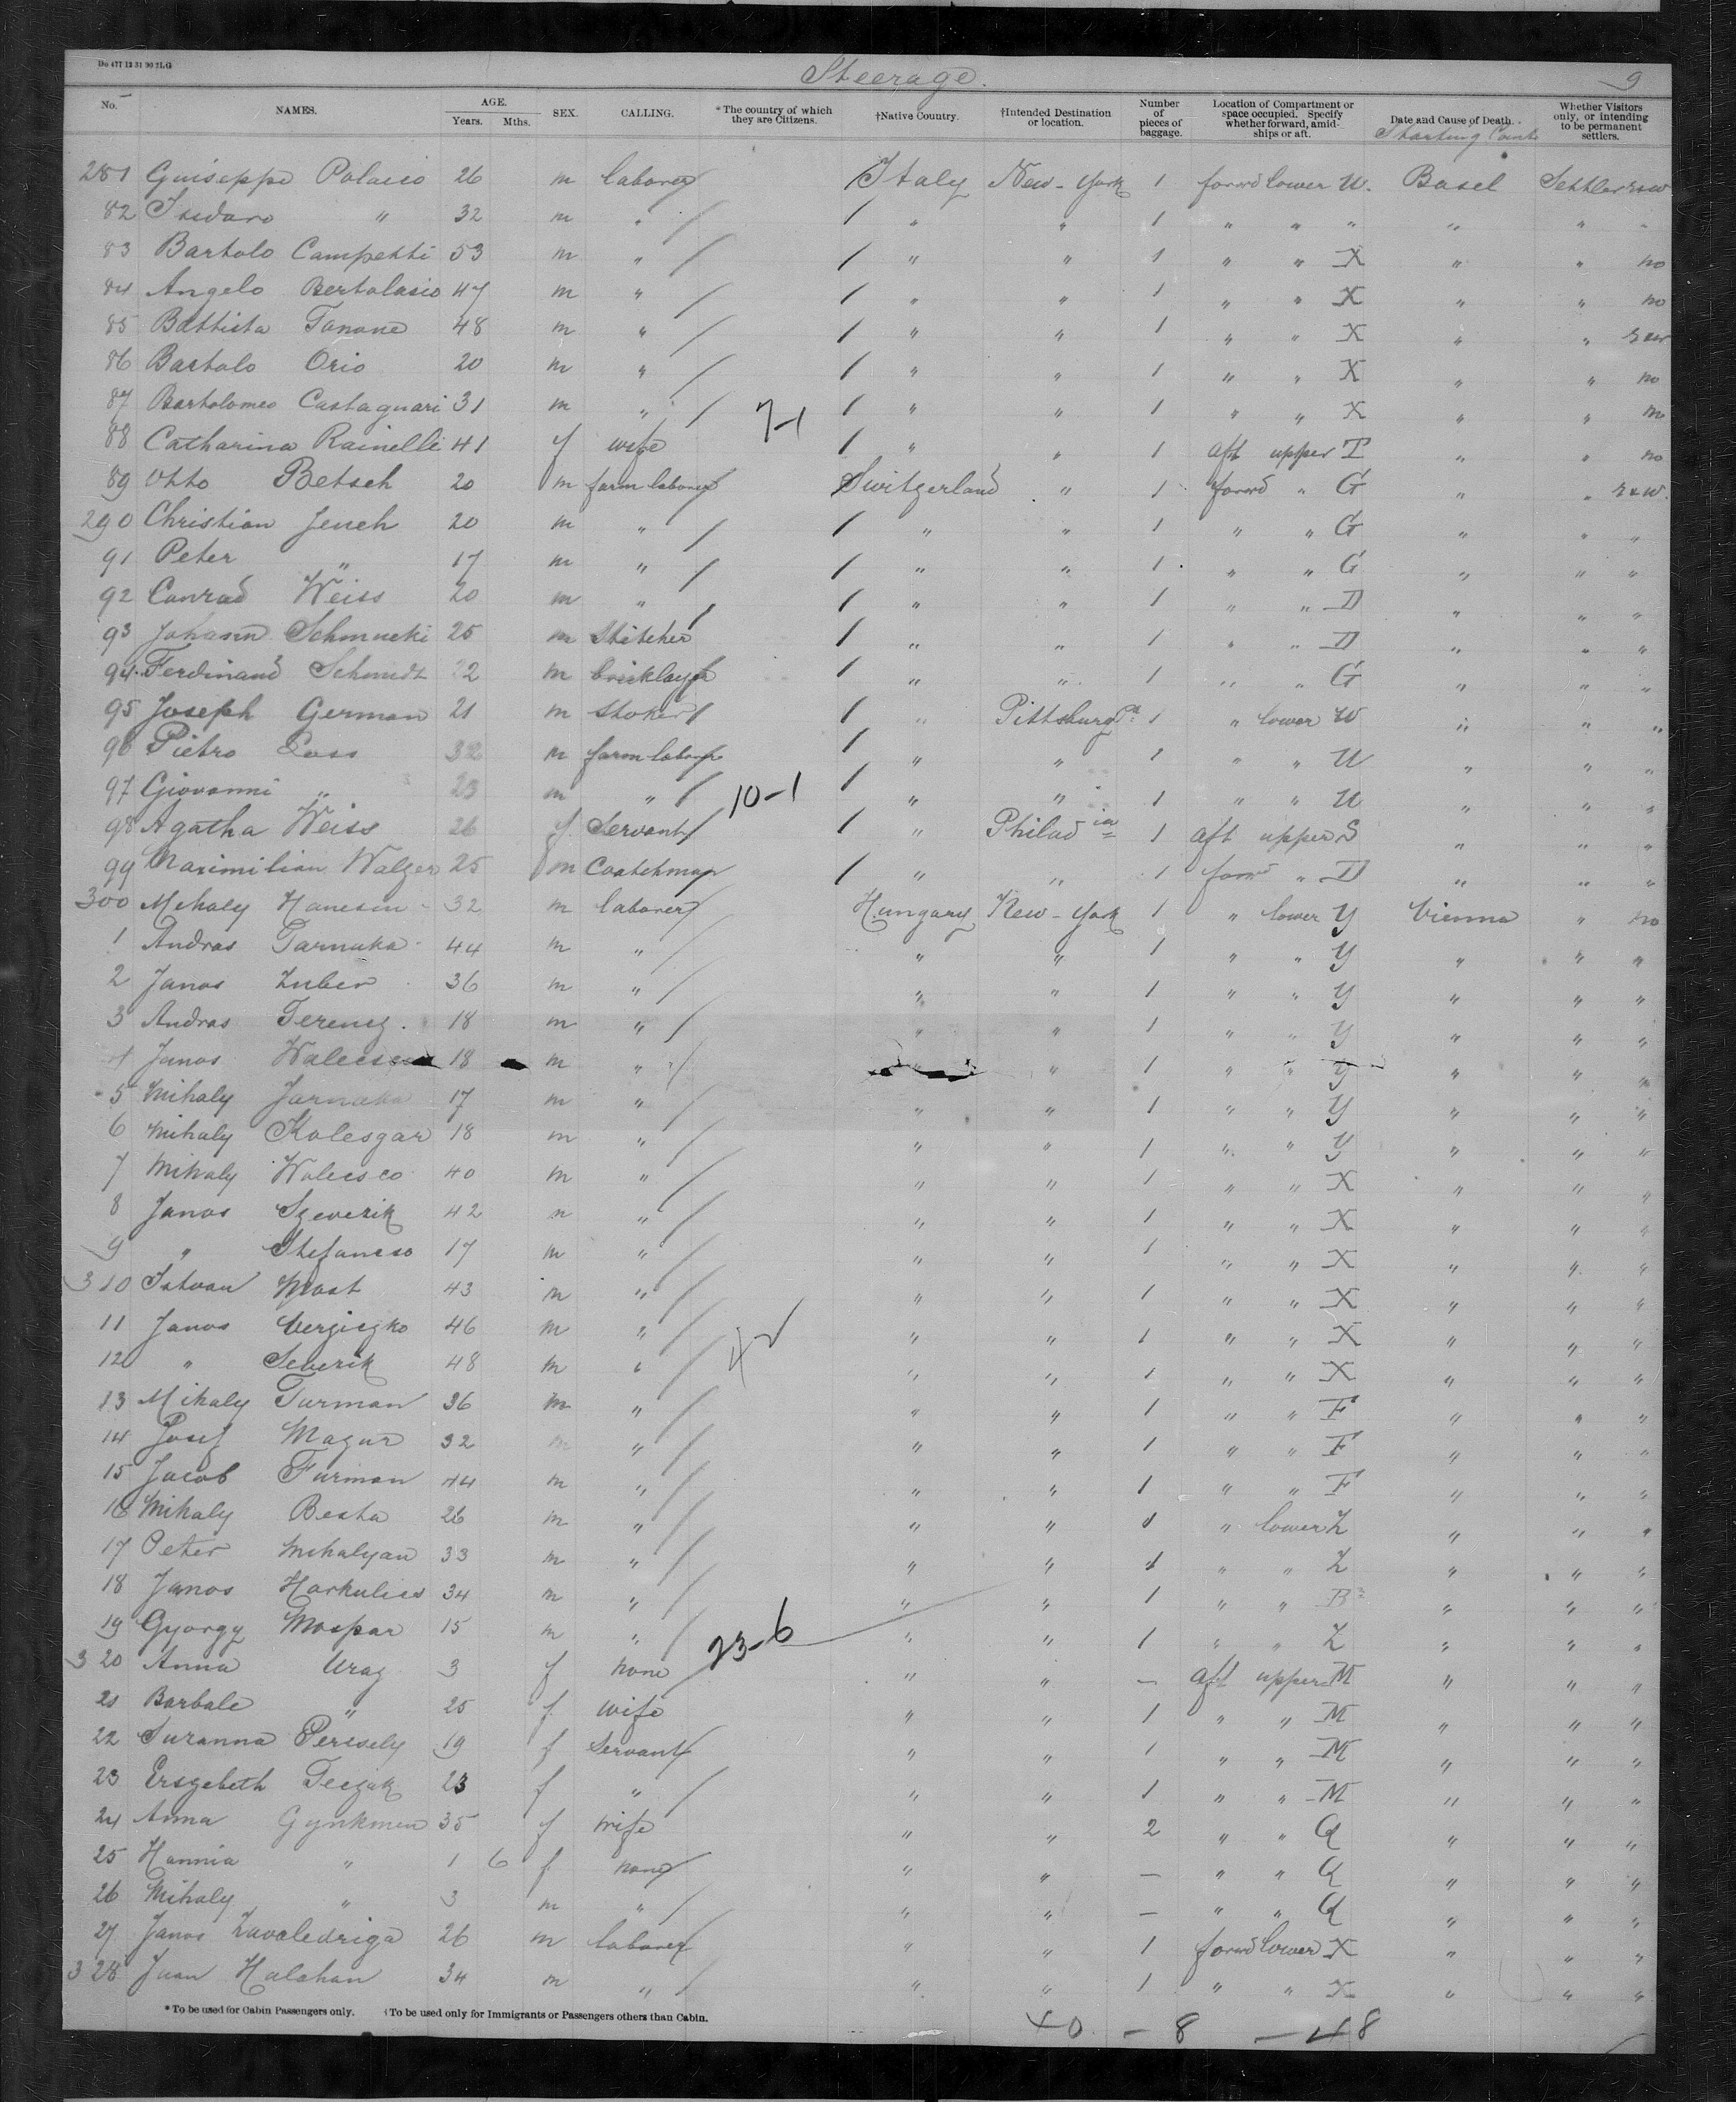 Do 477 12 31 90 2LG
Steerage. 9
No. NAMES. AGE. Years. Mths. SEX. CALLING. *The country of which they are Citizens. †Native Country. †Intended Destination or location. Number of pieces of baggage. Location of Compartment or space occupied. Specify whether forward, amidships or aft. Date and Cause of Death. Starting Whether Visitors only, or intending to be permanent settlers.
281 Guiseppe Polaico 26 m laborer Italy New-York 1 forwd lower U. Basel Settler
82 Isidoro " 32 m " " " 1 " " " " " "
83 Bartolo Campetti 53 m " " " 1 " " X " " no
84 Angelo Bertolasio 47 m " " " 1 " " X " " no
85 Battista Tanone 48 m " " " 1 " " X " "
86 Bartolo Orio 20 m " " " 1 " " X " " no
87 Bartolomeo Castagnari 31 m " 7-1 " " 1 " " X " " no
88 Catharina Rainelli 41 f wife " " 1 aft upper T " " no
89 Otto Betsch 20 m farm laborer Switzerland " 1 forwd " G " "
290 Christian Jench 20 m " " " 1 " " G " " "
91 Peter " 17 m " " " 1 " " G " " "
92 Conrad Weiss 20 m " " " 1 " " D " " "
93 Johann Schmucki 25 m Stitcher " " 1 " " D " " "
94 Ferdinand Schmidt 22 m bricklayer " " 1 " " G " " "
95 Joseph German 21 m stoker " Pittsburg Pa 1 " lower W " " "
96 Pietro 32 m farm laborer " " 1 " " U " " "
97 Giovanni " 23 m " 10-1 " " 1 " " U " " "
98 Agatha Weiss 26 f Servant " Philadia 1 aft upper S " " "
99 Maximilian Walzer 25 m Coatchman " " 1 forwd " D " " "
300 Mihaly Hanesin 32 m laborer Hungary New-York 1 " lower Y Vienna " no
1 Andras Tarnuka 44 m " " " 1 " " Y " " "
2 Janos Zuber 36 m " " " 1 " " Y " " "
3 Andras Ferencz 18 m " " " 1 " " Y " " "
4 Janos 18 m " " " 1 " " Y " " "
5 Mihaly Jarnaka 17 m " " " 1 " " Y " " "
6 Mihaly Kolesgar 18 m " " " 1 " " Y " " "
7 Mihaly Walesco 40 m " " " 1 " " X " " "
8 Janos Szeverik 42 m " " " 1 " " X " " "
9 " Stefancso 17 m " " " 1 " " X " " "
310 Istvan Most 43 m " " " 1 " " X " " "
11 Janos Vergiczko 46 m " " " 1 " " X " " "
12 " Severik 48 m " " " 1 " " X " " "
13 Mihaly Furman 36 m " " " 1 " " F " " "
14 Josef Magur 32 m " " " 1 " " F " " "
15 Jacob Furman 44 m " " " 1 " " F " " "
16 Mihaly Besta 26 m " " " 1 " lower Z " " "
17 Peter Mihalyan 33 m " " " 1 " " Z " " "
18 Janos Harkulics 34 m " " " 1 " " B " " "
19 Gyorgy Mospar 15 m " 23-6 " " 1 " " Z " " "
320 Anna Uray 3 f none " " — aft upper M " " "
21 Barbale " 25 f wife " " 1 " " M " " "
22 Suranna Percsely 19 f Servant " " 1 " " M " " "
23 Erszebeth Teczak 23 f " " " 1 " " M " " "
24 Anna Gynkmen 35 f wife " " 2 " " Q " " "
25 Hannia " 1 6 f none " " — " " Q " " "
26 Mihaly " 3 m " " " — " " Q " " "
27 Janos Zavaledriga 26 m laborer " " 1 forwd lower X " " "
328 Juan Halahan 34 m " " " 1 " " X " " "
*To be used for Cabin Passengers only. †To be used only for Immigrants or Passengers others than Cabin.
40 — 8 — 48